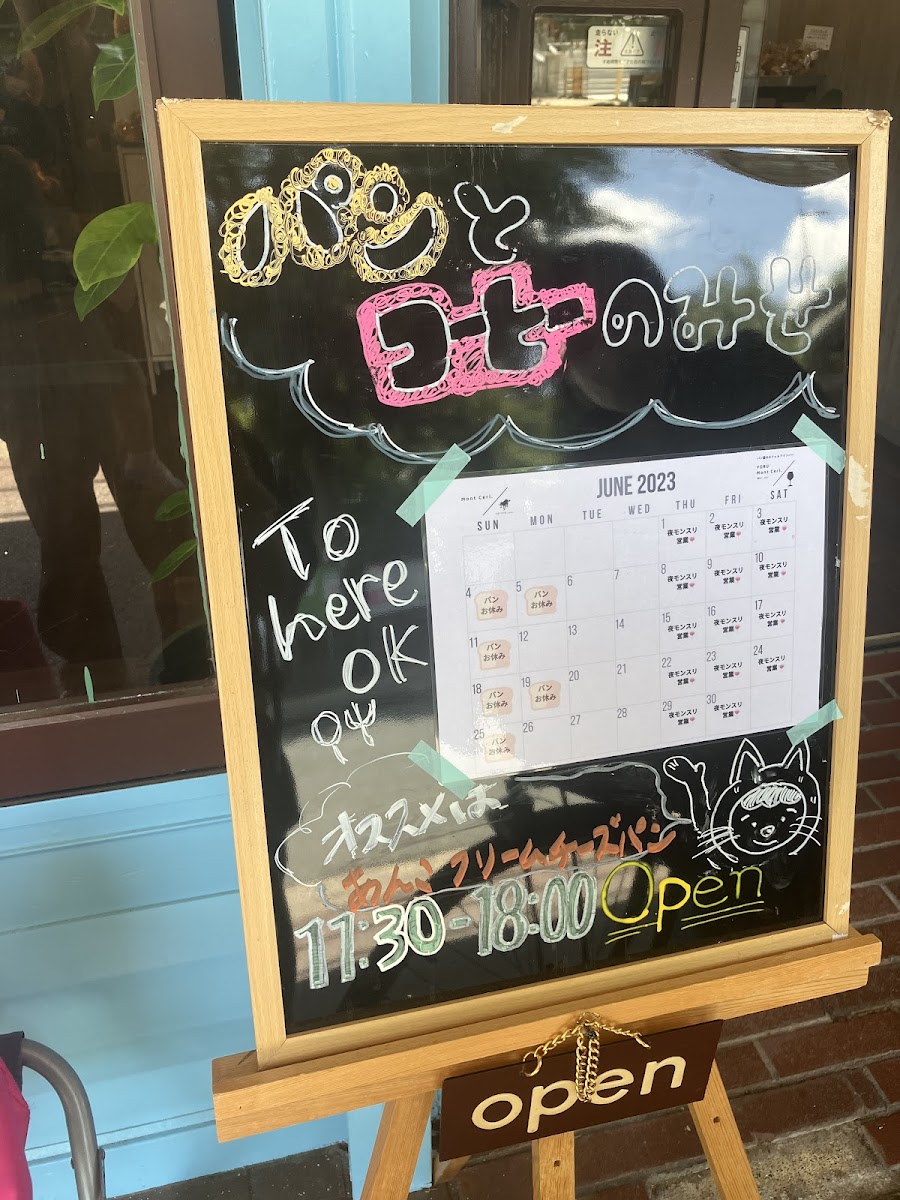 走らない
注
パンと
コーヒーのみせ
To
here
OK
Mont Ceri.
JUNE 2023
YORU
Mont Ceri.
SUN MON TUE WED THU FRI SAT
1 2 3
夜モンスリ 夜モンスリ 夜モンスリ
営業 営業 営業
4 5 6 7 8 9 10
パン パン 夜モンスリ 夜モンスリ 夜モンスリ
お休み お休み 営業 営業 営業
11 12 13 14 15 16 17
パン 夜モンスリ 夜モンスリ 夜モンスリ
お休み 営業 営業 営業
18 19 20 21 22 23 24
パン パン 夜モンスリ 夜モンスリ 夜モンスリ
お休み お休み 営業 営業 営業
25 26 27 28 29 30
パン 夜モンスリ 夜モンスリ
お休み 営業 営業
オススメは
あんこクリームチーズパン
11:30-18:00 Open
open